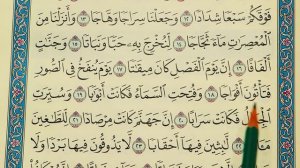 فَوْقَكُمْ سَبْعًا شِدَادًا ١٢ وَجَعَلْنَا سِرَاجًا وَهَّاجًا ١٣ وَأَنزَلْنَا مِنَ
الْمُعْصِرَاتِ مَاءً ثَجَّاجًا ١٤ لِّنُخْرِجَ بِهِ حَبًّا وَنَبَاتًا ١٥ وَجَنَّاتٍ
أَلْفَافًا ١٦ إِنَّ يَوْمَ الْفَصْلِ كَانَ مِيقَاتًا ١٧ يَوْمَ يُنفَخُ فِي الصُّورِ
فَتَأْتُونَ أَفْوَاجًا ١٨ وَفُتِحَتِ السَّمَاءُ فَكَانَتْ أَبْوَابًا ١٩ وَسُيِّرَتِ
الْجِبَالُ فَكَانَتْ سَرَابًا ٢٠ إِنَّ جَهَنَّمَ كَانَتْ مِرْصَادًا ٢١ لِّلطَّاغِينَ
مَآبًا ٢٢ لَّابِثِينَ فِيهَا أَحْقَابًا ٢٣ لَّا يَذُوقُونَ فِيهَا بَرْدًا وَلَا